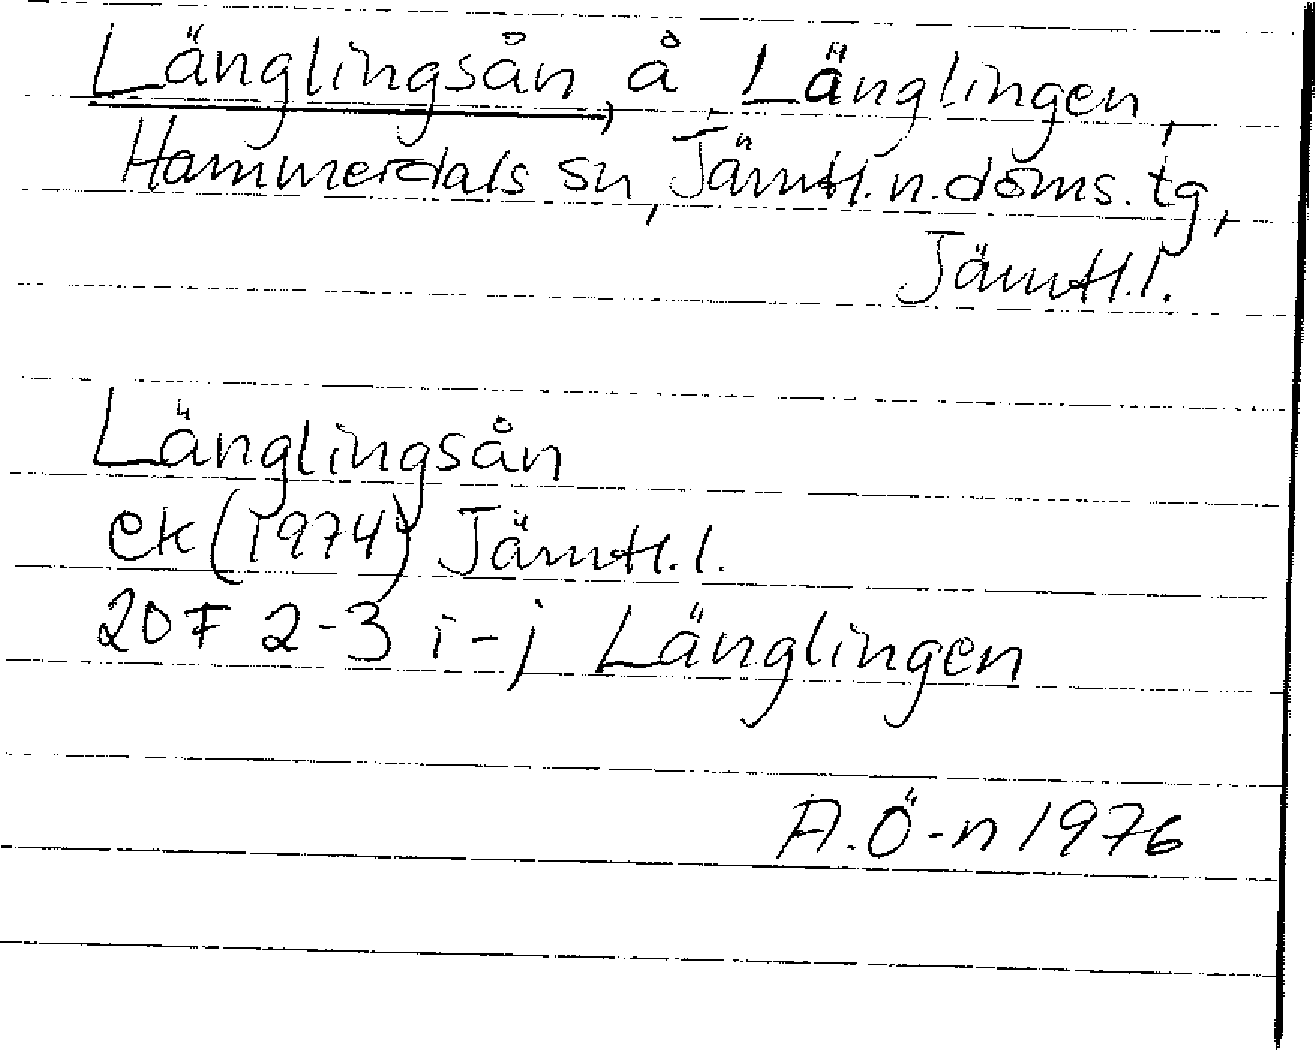 Länglingsån, å, Länglingen,
Hammerdals sn, Jämtl. n. doms. tg,
Jämtl. l.
Länglingsån
ek (1974) Jämtl. l.
20F 2-3 i-j Länglingen
A. Ö-n 1976